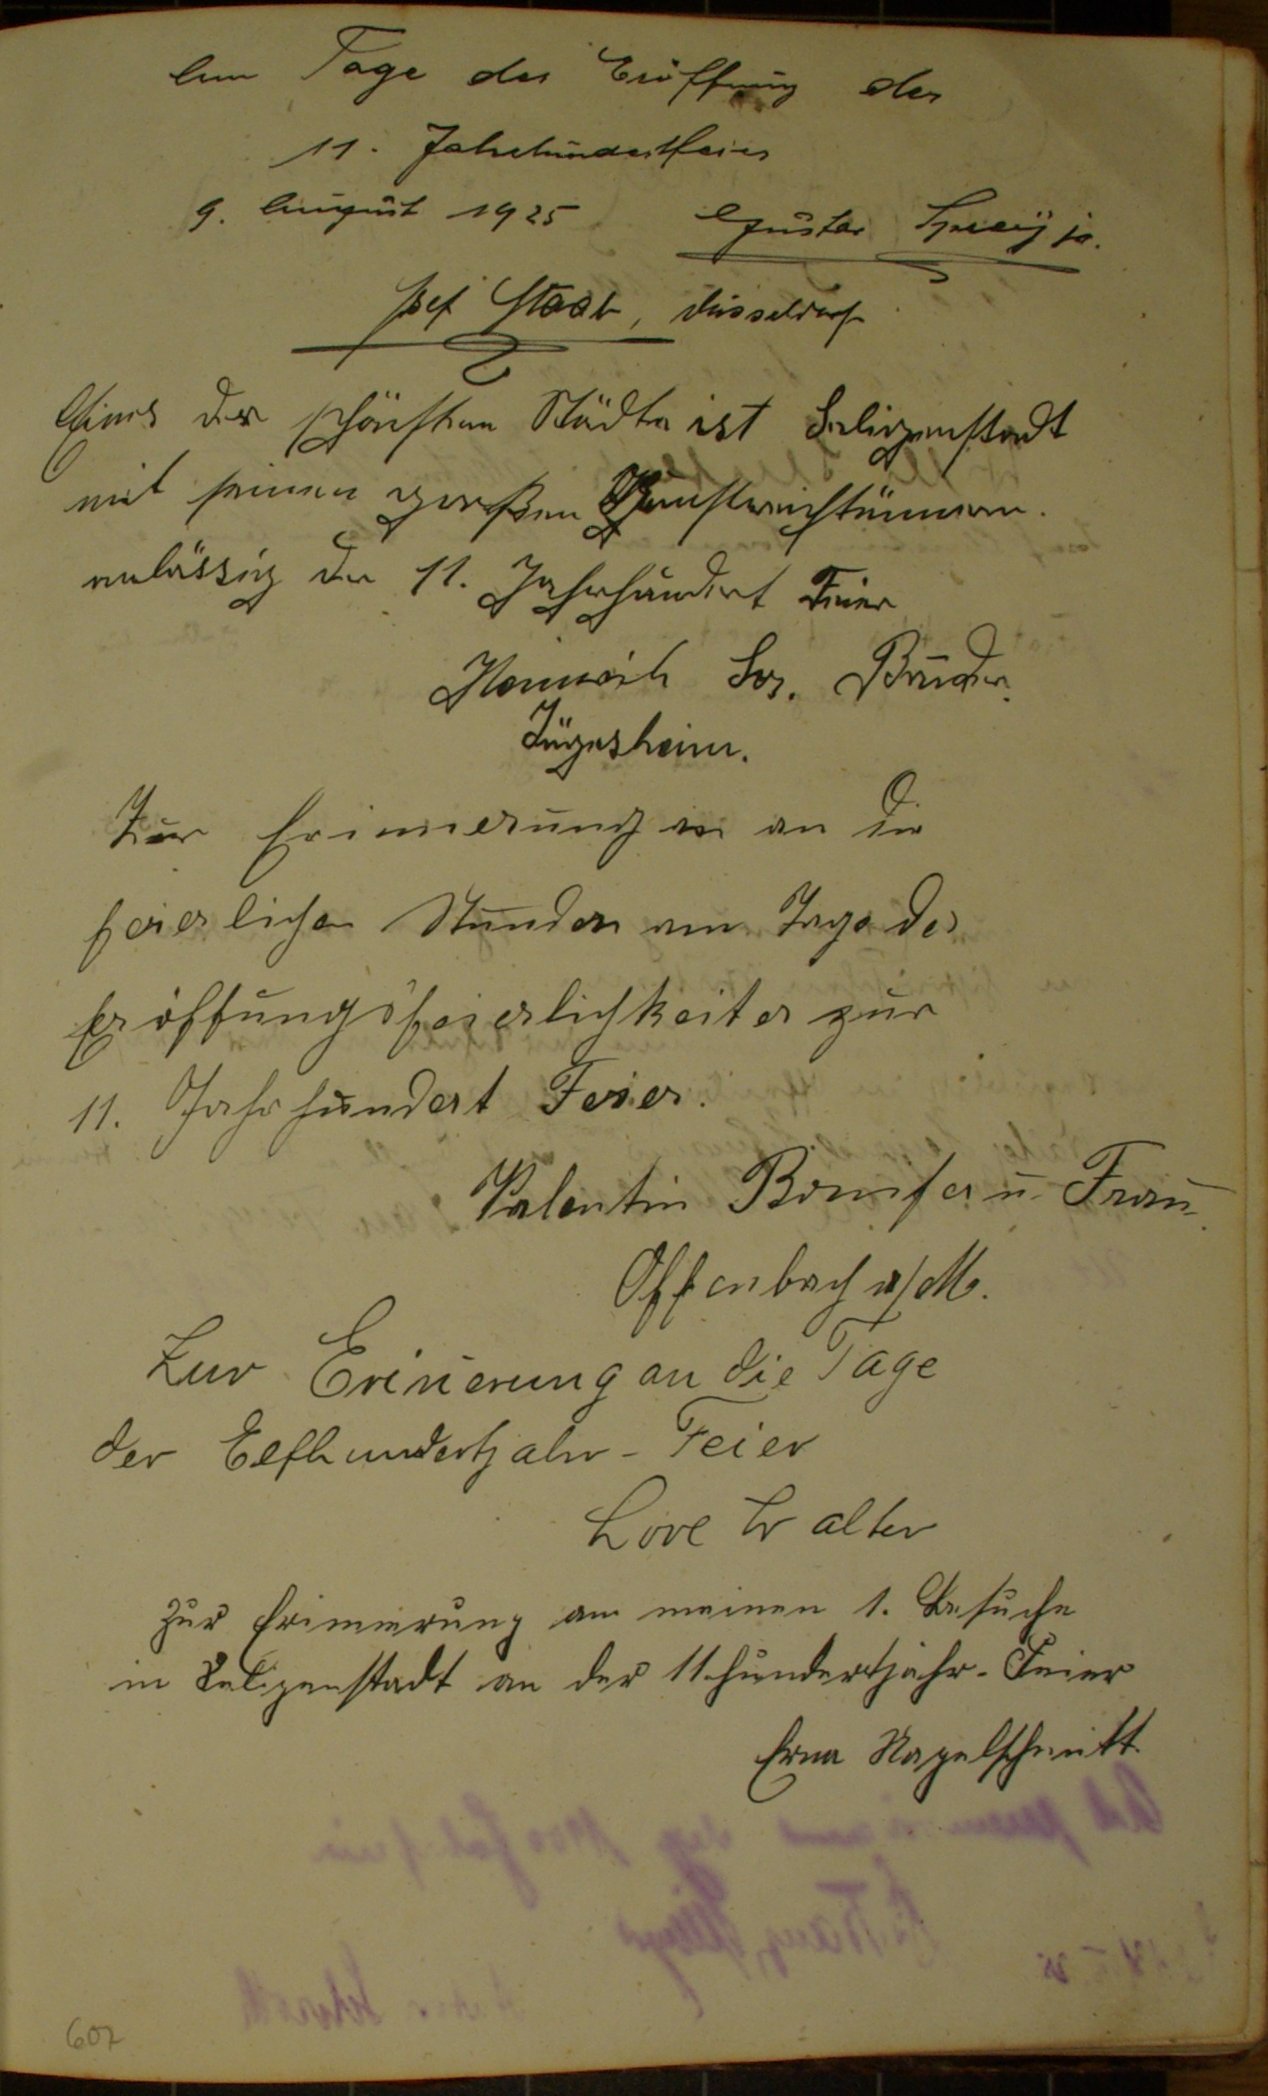 Am Tage der Eröffnung der
11. Jahrhundertfeier
9. August 1925 Gustav jr.
Josef Staab, Düsseldorf
Eines der schönsten Städte ist Seligenstadt
mit seinen großen Kunstreichtümern.
anlässig der 11. Jahrhundert Feier
Heinrich Jos. Bruder.
Jügesheim.
Zur Erinnerung an die
feierlichen Stunden am Tage der
Eröffungsfeierlichkeiten zur
11. Jahrhundert Feier.
Valentin u. Frau
Offenbach a/M.
Zur Erinerung an die Tage
der Elfhundertjahr-Feier
Lore Walter
Zur Erinnerung an meinen 1. Besuche
in Seligenstadt an der 11hundertjahr-Feier
Erna Nagelschmitt.
607